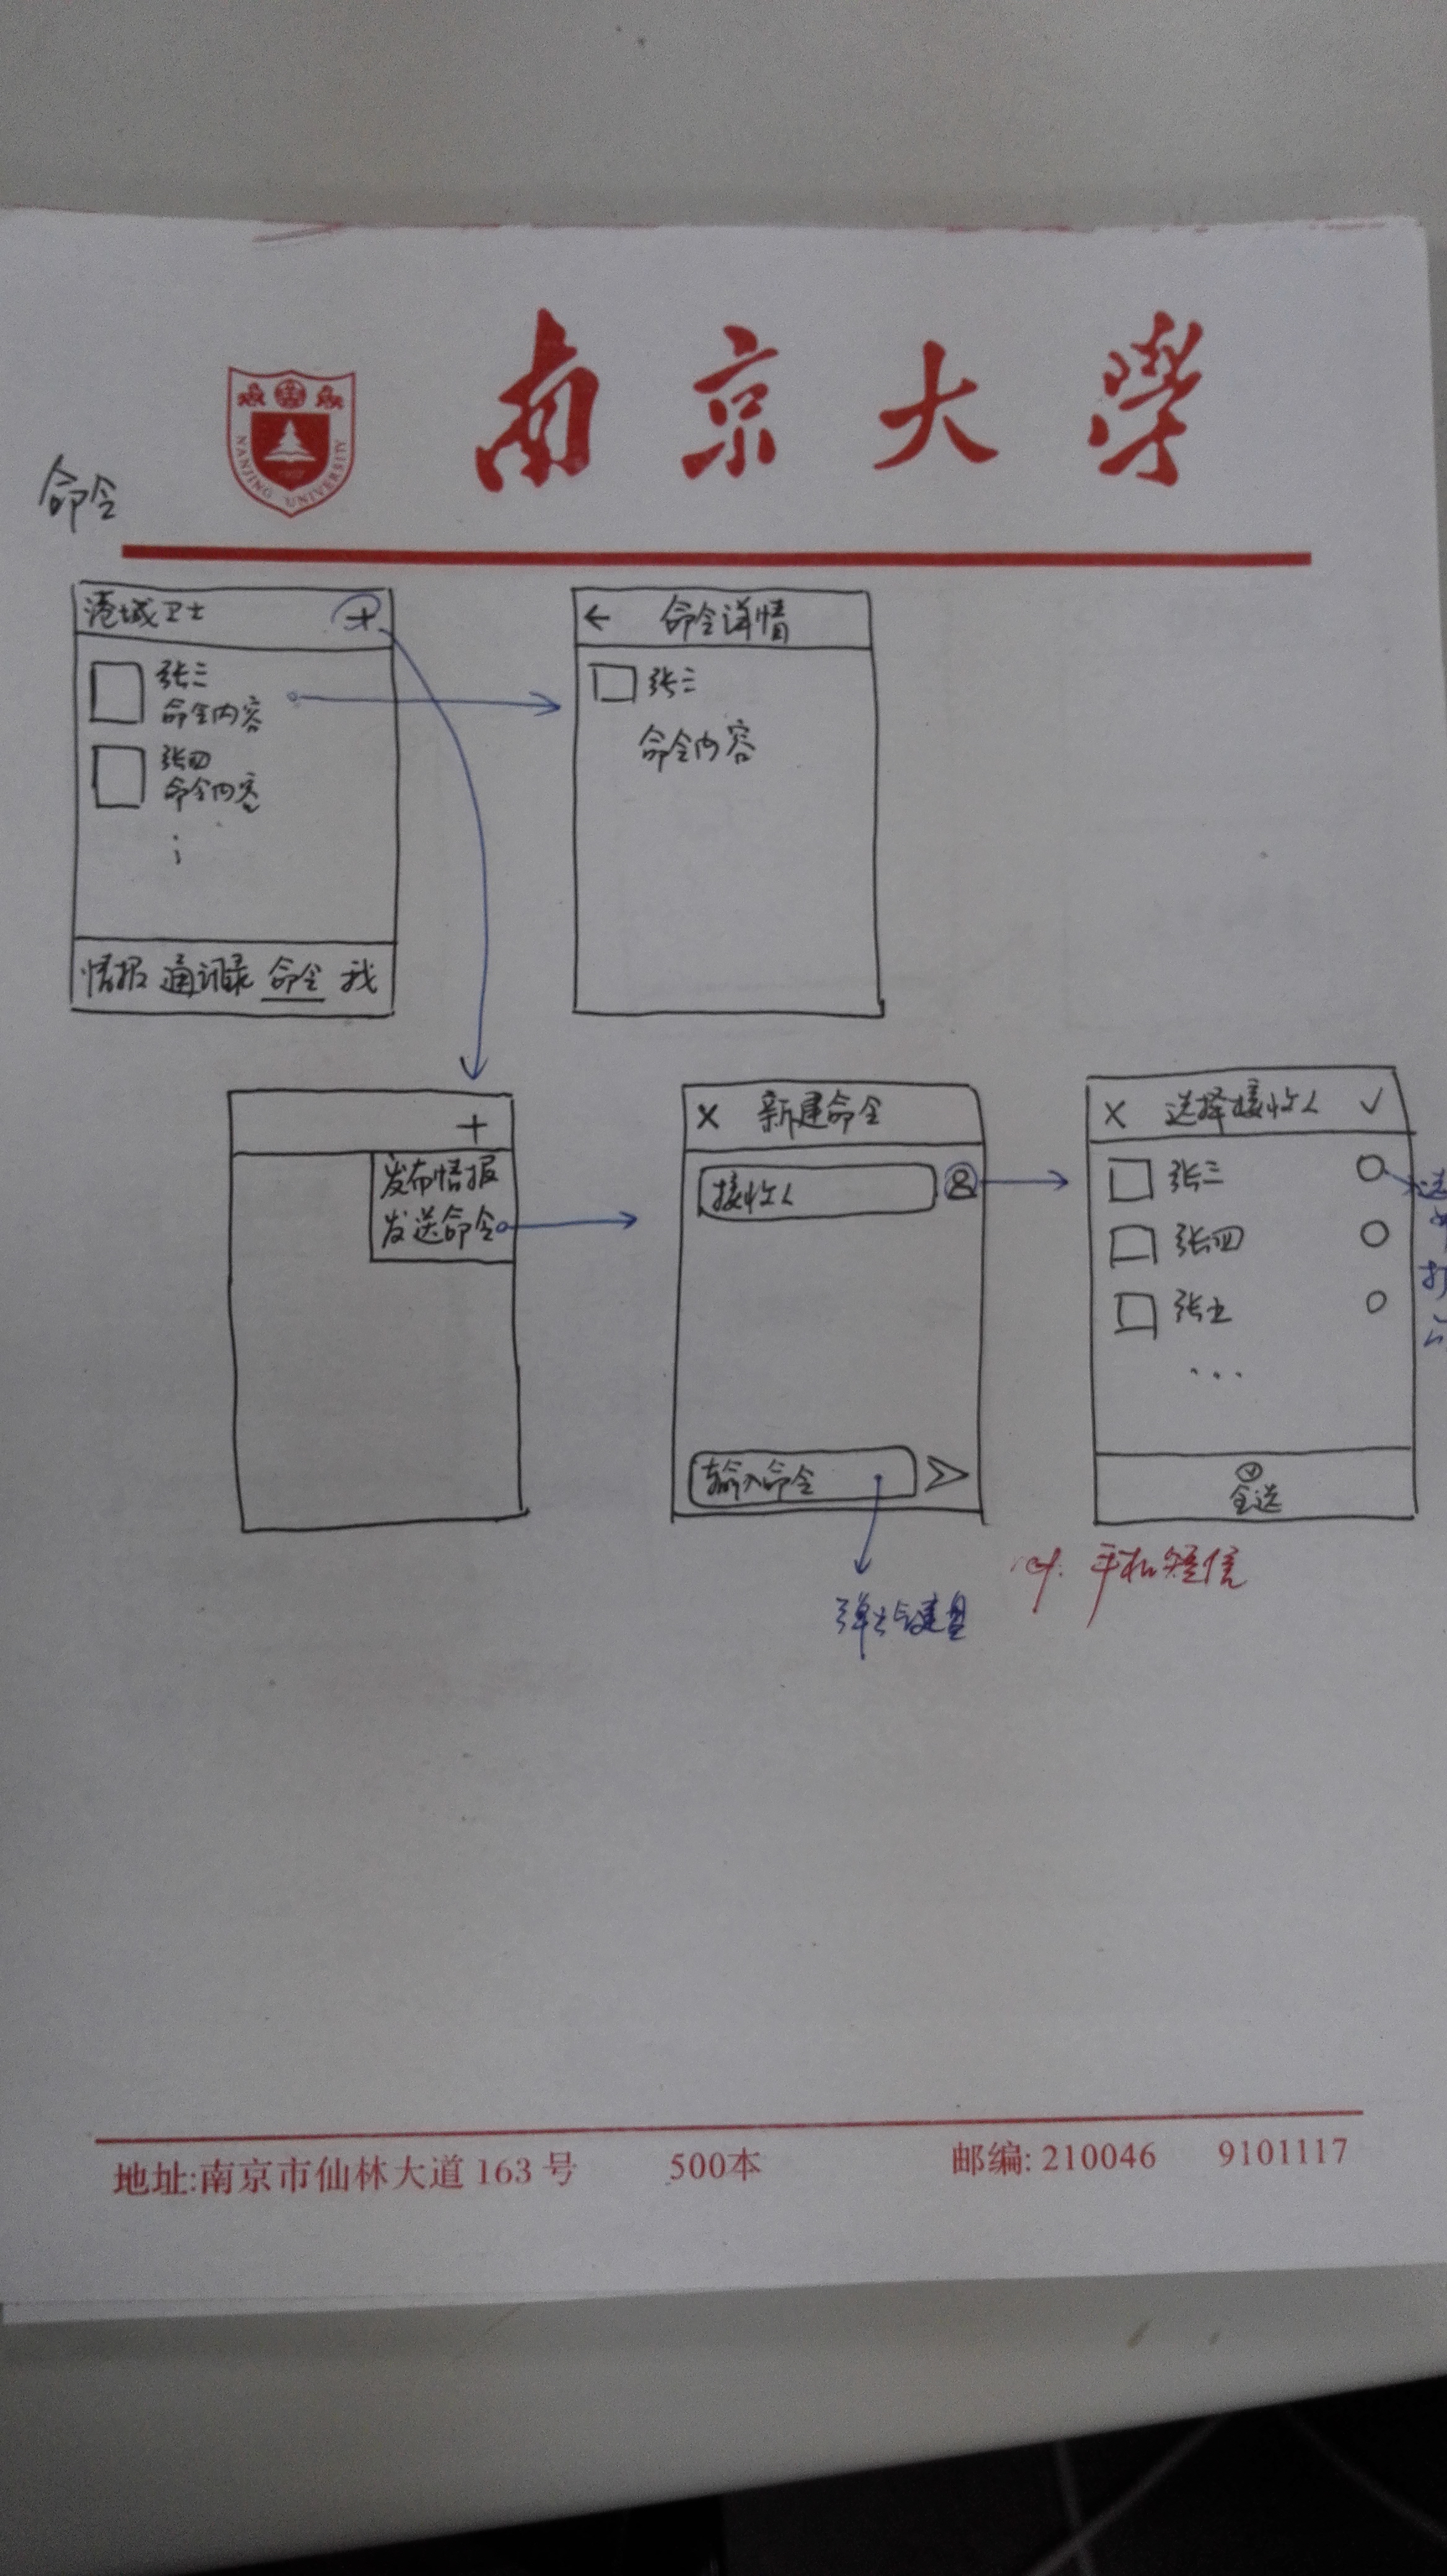 南京大學
NANJING UNIVERSITY
命令
港城卫士 +
张三
命令内容
张四
命令内容
情报 通讯录 命令 我
← 命令详情
张三
命令内容
+
发布情报
发送命令
X 新建命令
接收人
输入命令
弹出键盘
X 选择接收人 ✓
张三
张四
张五
...
全选
手机短信
地址:南京市仙林大道 163 号 500本 邮编: 210046 9101117